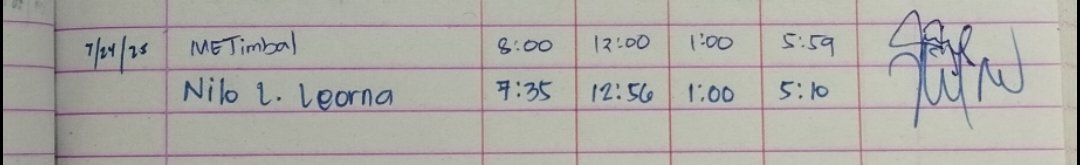 7/24/25 METimbal 8:00 12:00 1:00 5:59
Nilo L. Leorna 7:35 12:56 1:00 5:10